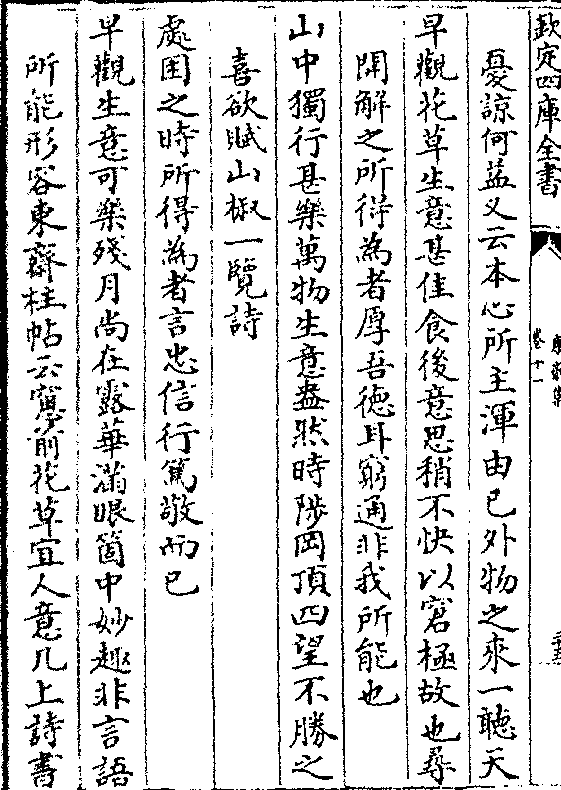 欽定四庫全書
康齋集
卷十一
憂諒何益又云本心所主渾由己外物之來一聽天
早觀花草生意甚佳食後意思稍不快以窘極故也尋
開解之所得為者厚吾徳耳窮通非我所能也
山中獨行甚樂萬物生意盎然時陟岡頂四望不勝之
喜欲賦山椒一覽詩
處困之時所得為者言忠信行篤敬而已
早觀生意可樂殘月尚在露華滿眼箇中妙趣非言語
所能形容東齋柱帖云窻前花草宜人意几上詩書